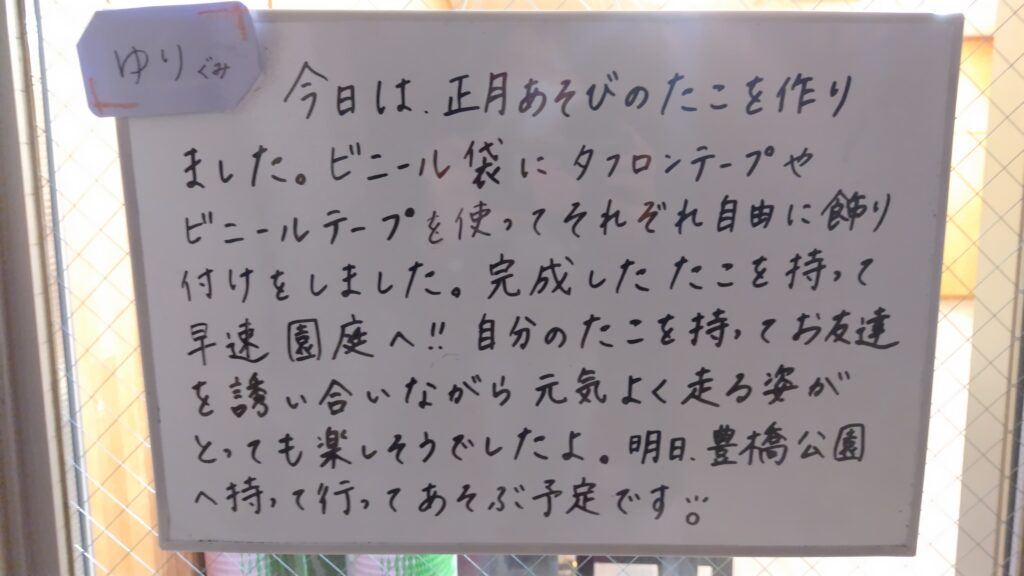 ゆりぐみ
今日は、正月あそびのたこを作り
ました。ビニール袋にタフロンテープや
ビニールテープを使ってそれぞれ自由に飾り
付けをしました。完成したたこを持って
早速園庭へ!! 自分のたこを持ってお友達
を誘い合いながら元気よく走る姿が
とっても楽しそうでしたよ。明日、豊橋公園
へ持って行ってあそぶ予定です